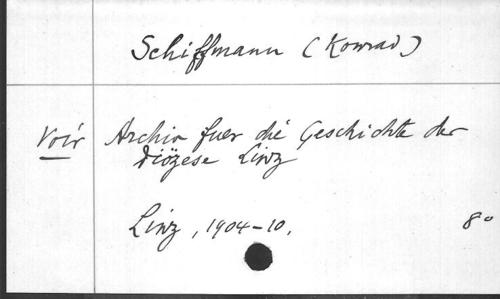 Schiffmann (Konrad)
Voir Archiv fuer die Geschichte der
Diözese Linz
Linz, 1904-10. 8°